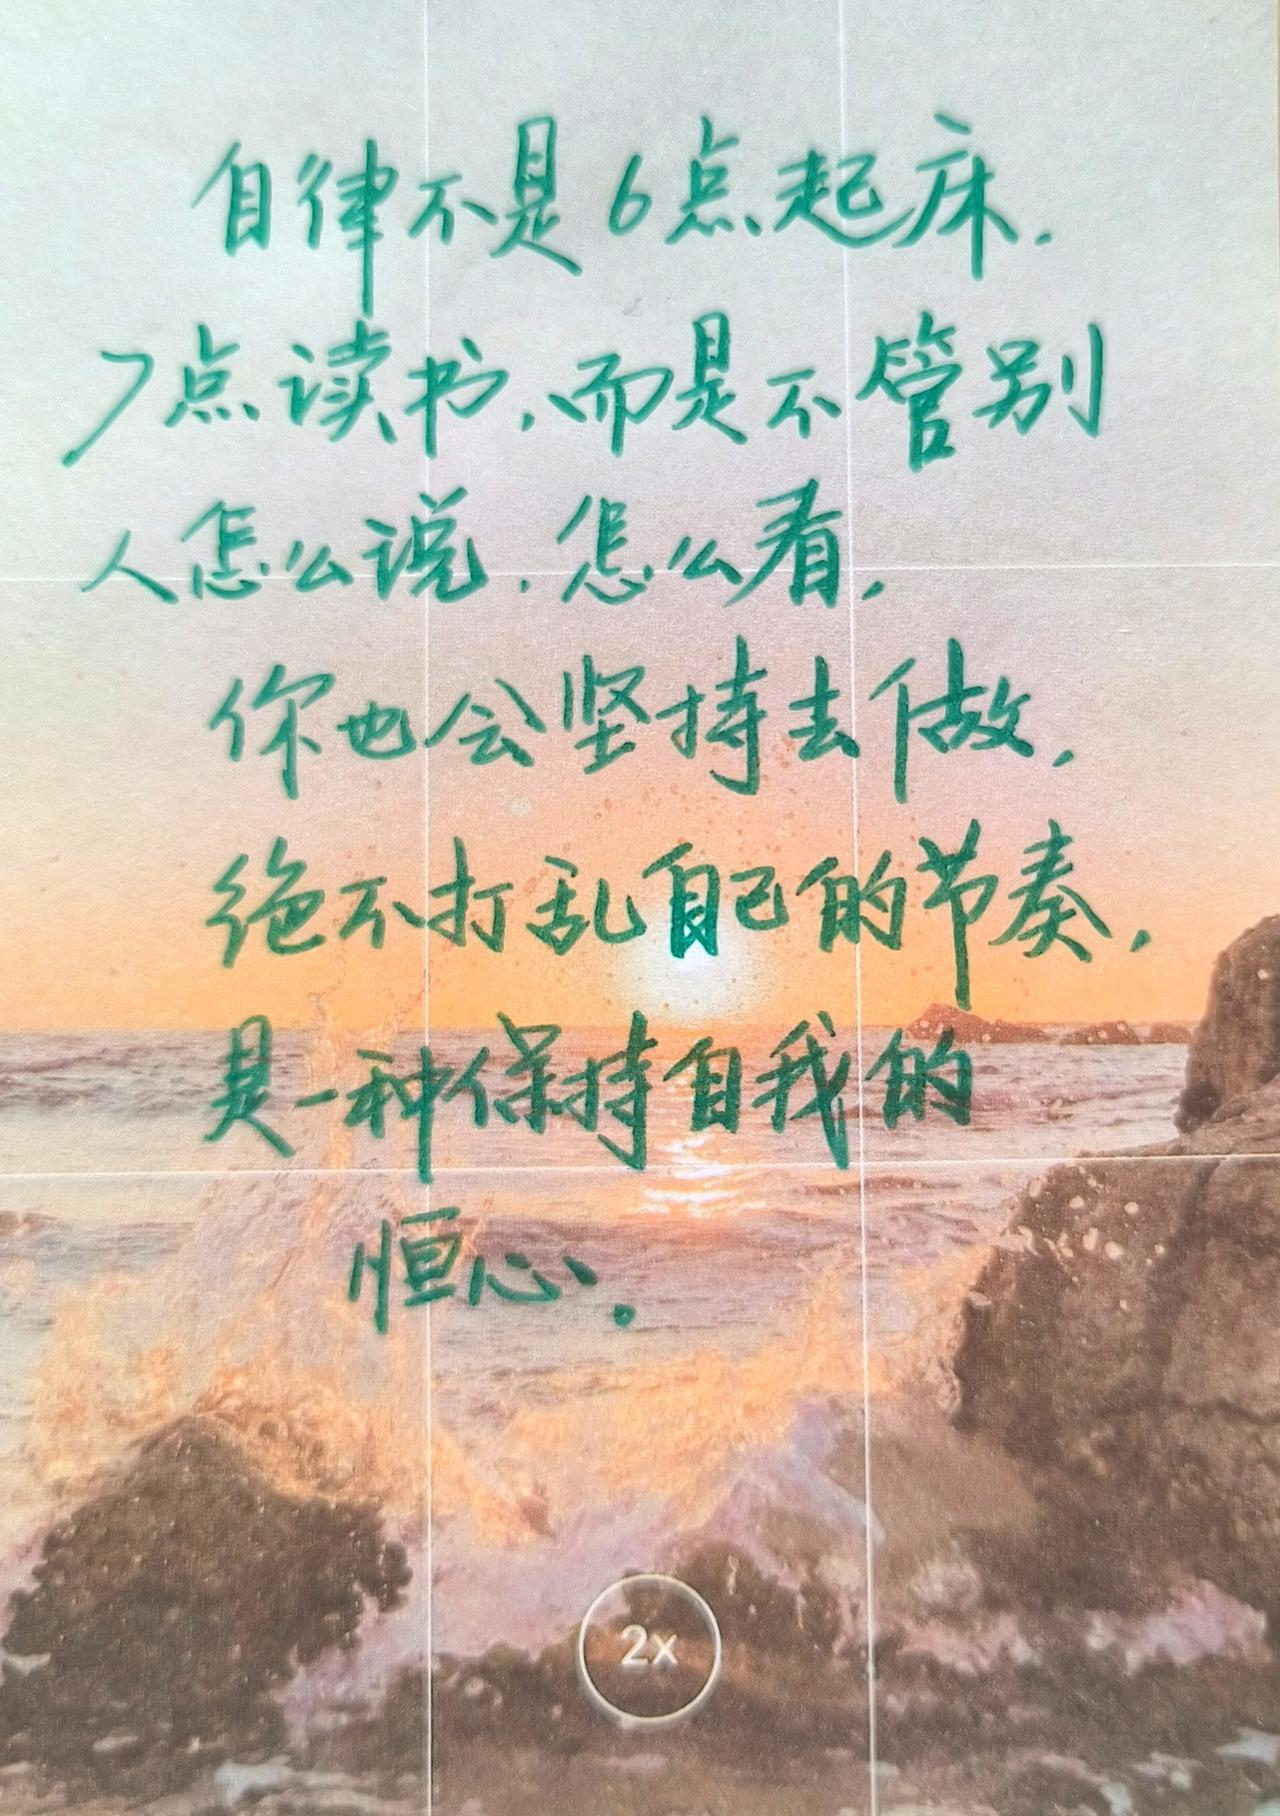 自律不是6点起床.
7点读书,而是不管别
人怎么说.怎么看,
你也会坚持去做,
绝不打乱自己的节奏,
是一种保持自我的
恒心.
2x